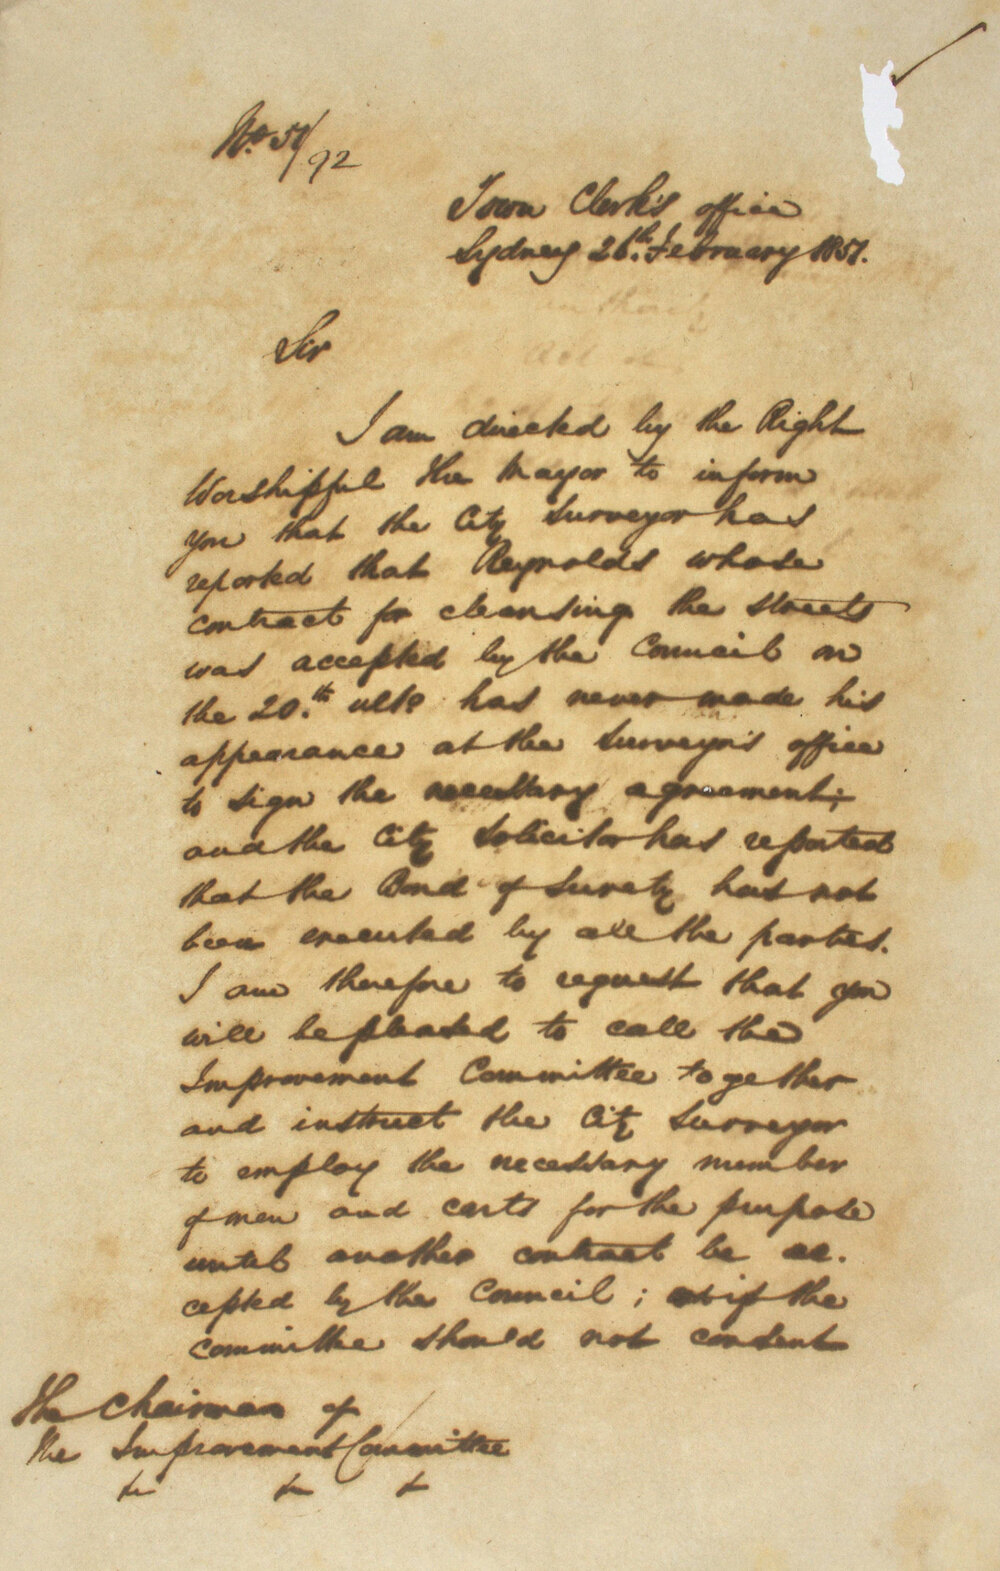 No. 57/92
Town Clerk's office
Sydney 26th. February 1857.
Sir
I am directed by the Right
Worshipful the Mayor to inform
you that the City Surveyor has
reported that Reynolds whose
contract for cleansing the streets
was accepted by the Council on
the 20.th ulto has never made his
appearance at the Surveyor's office
to sign the necessary agreement;
and the City Solicitor has reported
that the Bond of Surety has not
been executed by all the parties.
I am therefore to request that you
will be pleased to call the
Improvement Committee together
and instruct the City Surveyor
to employ the necessary number
of men and carts for the purpose
until another contract be ac.
cepted by the Council; if the
committee should not consent
The Chairman of
the Improvement Committee